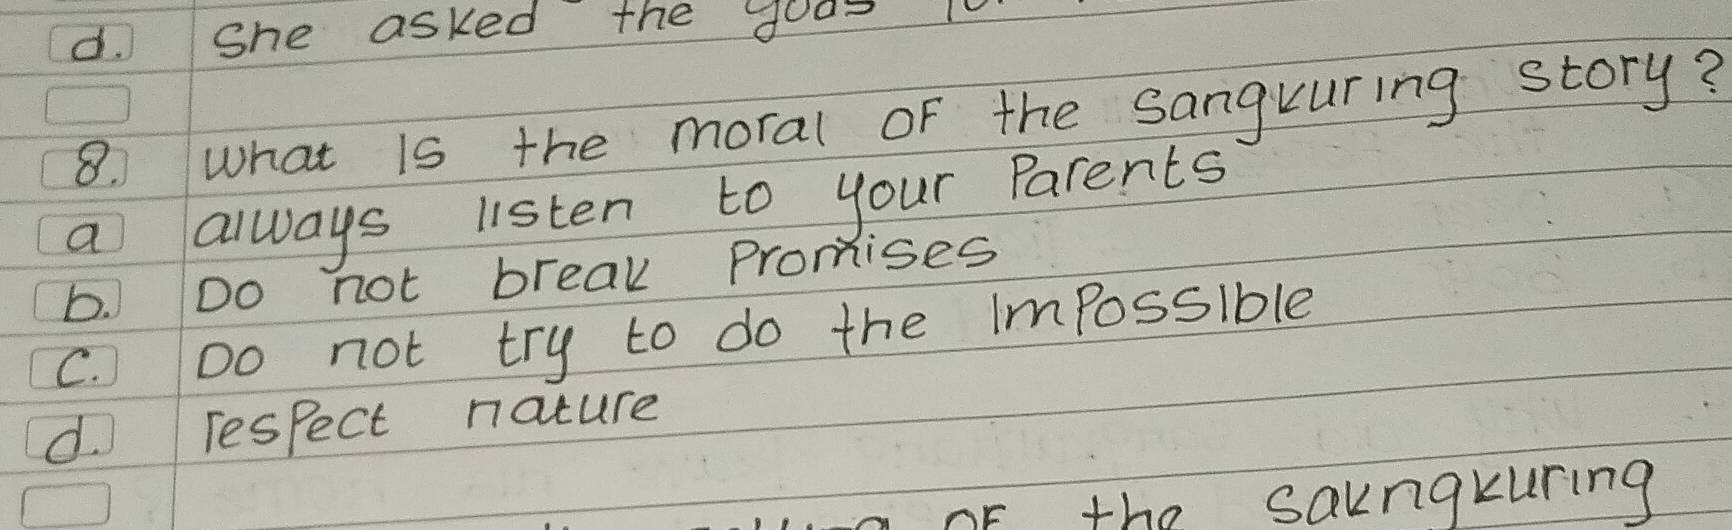 d. She asked the gods
8. what is the moral OF the sangkuring story?
a always listen to your Parents
b. Do not break Promises
C. Do not try to do the imPossible
d. resPect nature
OF the sakngkuring